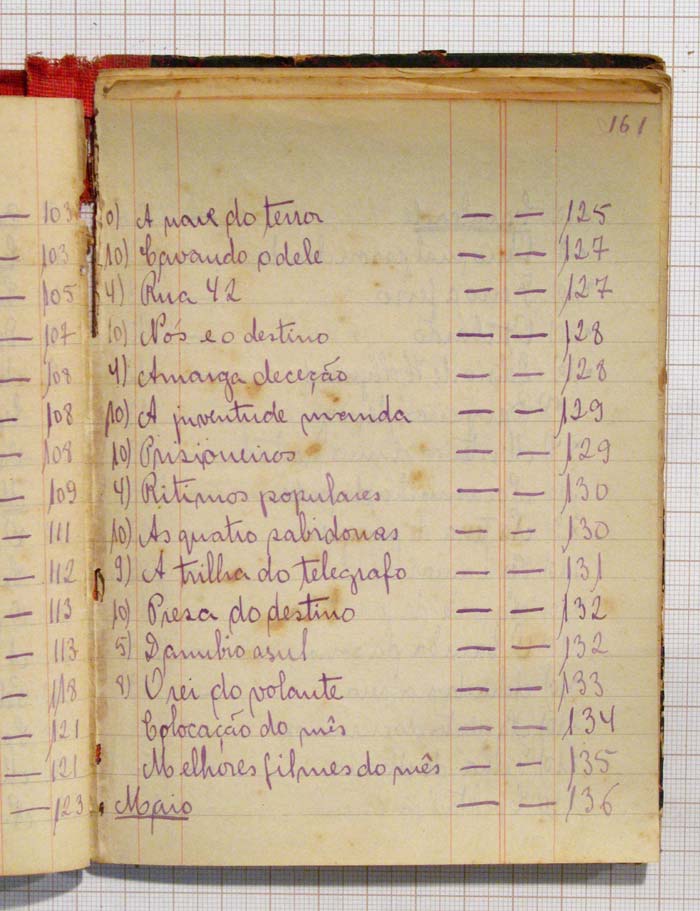 161
103
103
105
107
108
108
108
109
111
112
113
113
118
121
121
123
0) A nave do terror — — 125
10) Cavando o dele — — 127
4) Rua 42 — — 127
10) Nós e o destino — — 128
4) Amarga deceção — — 128
10) A juventude manda — — 129
10) Prisioneiros — — 129
4) Ritimos populares — — 130
10) As quatro sabidonas — — 130
9) A trilha do telegrafo — — 131
10) Presa do destino — — 132
5) Danubio asul — — 132
8) O rei do volante — — 133
Colocação do mês — — 134
Melhores filmes do mês — — 135
Maio — — 136